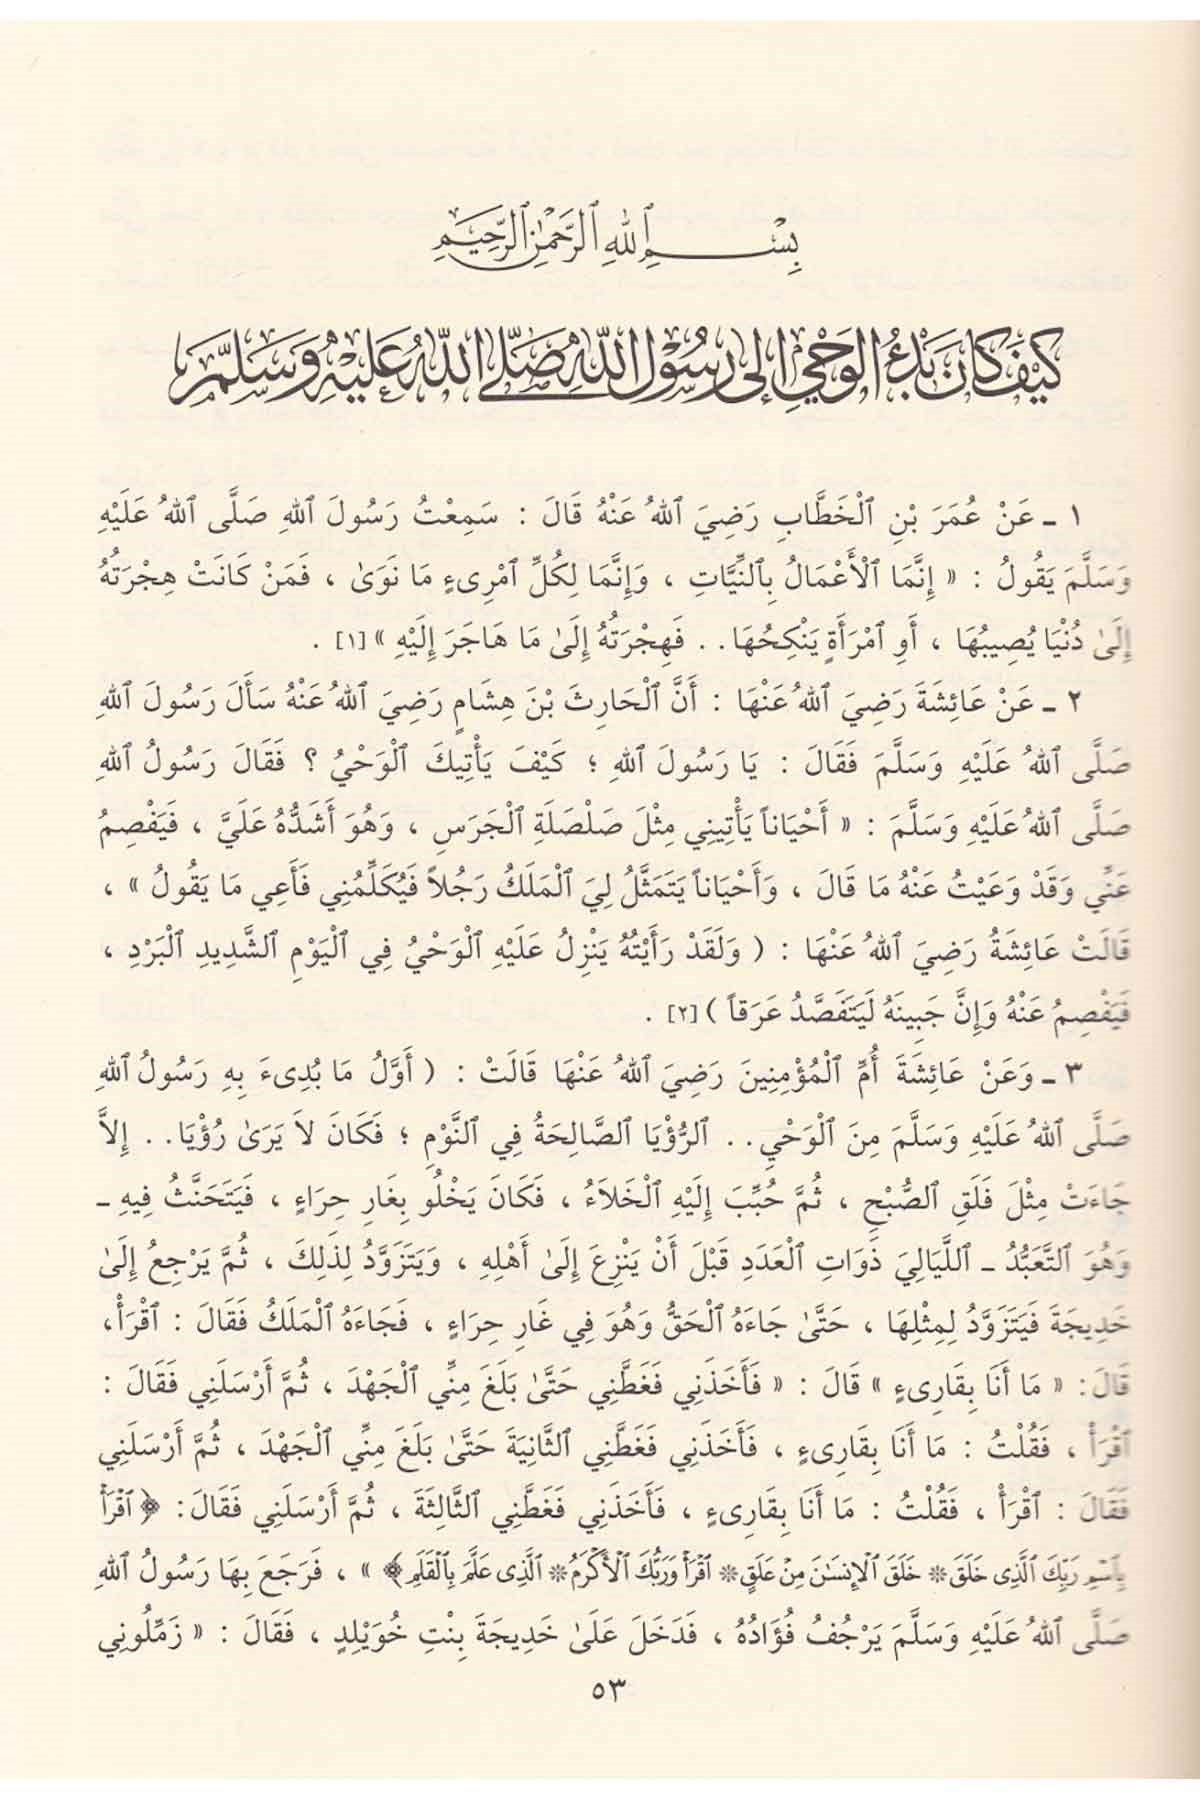 بِسْمِ ٱللهِ ٱلرَّحْمَٰنِ ٱلرَّحِيمِ
كَيْفَ كَانَ بَدْءُ الوَحْيِ إِلَى رَسُوْلِ اللهِ صَلَّى اللهُ عَلَيْهِ وَسَلَّمَ
١ ـ عَنْ عُمَرَ بْنِ ٱلْخَطَّابِ رَضِيَ ٱللهُ عَنْهُ قَالَ : سَمِعْتُ رَسُولَ ٱللهِ صَلَّى ٱللهُ عَلَيْهِ
وَسَلَّمَ يَقُولُ : « إِنَّمَا ٱلْأَعْمَالُ بِٱلنِّيَّاتِ ، وَإِنَّمَا لِكُلِّ ٱمْرِىءٍ مَا نَوَىٰ ، فَمَنْ كَانَتْ هِجْرَتُهُ
إِلَىٰ دُنْيَا يُصِيبُهَا ، أَوِ ٱمْرَأَةٍ يَنْكِحُهَا.. فَهِجْرَتُهُ إِلَىٰ مَا هَاجَرَ إِلَيْهِ » [١] .
٢ ـ عَنْ عَائِشَةَ رَضِيَ ٱللهُ عَنْهَا : أَنَّ ٱلْحَارِثَ بْنَ هِشَامٍ رَضِيَ ٱللهُ عَنْهُ سَأَلَ رَسُولَ ٱللهِ
صَلَّى ٱللهُ عَلَيْهِ وَسَلَّمَ فَقَالَ : يَا رَسُولَ ٱللهِ ؛ كَيْفَ يَأْتِيكَ ٱلْوَحْيُ ؟ فَقَالَ رَسُولُ ٱللهِ
صَلَّى ٱللهُ عَلَيْهِ وَسَلَّمَ : « أَحْيَاناً يَأْتِينِي مِثْلَ صَلْصَلَةِ ٱلْجَرَسِ ، وَهُوَ أَشَدُّهُ عَلَيَّ ، فَيَفْصِمُ
عَنِّي وَقَدْ وَعَيْتُ عَنْهُ مَا قَالَ ، وَأَحْيَاناً يَتَمَثَّلُ لِيَ ٱلْمَلَكُ رَجُلاً فَيُكَلِّمُنِي فَأَعِي مَا يَقُولُ » ،
قَالَتْ عَائِشَةُ رَضِيَ ٱللهُ عَنْهَا : ( وَلَقَدْ رَأَيْتُهُ يَنْزِلُ عَلَيْهِ ٱلْوَحْيُ فِي ٱلْيَوْمِ ٱلشَّدِيدِ ٱلْبَرْدِ ،
فَيَفْصِمُ عَنْهُ وَإِنَّ جَبِينَهُ لَيَتَفَصَّدُ عَرَقاً ) [٢] .
٣ ـ وَعَنْ عَائِشَةَ أُمِّ ٱلْمُؤْمِنِينَ رَضِيَ ٱللهُ عَنْهَا قَالَتْ : ( أَوَّلُ مَا بُدِىءَ بِهِ رَسُولُ ٱللهِ
صَلَّى ٱللهُ عَلَيْهِ وَسَلَّمَ مِنَ ٱلْوَحْيِ.. ٱلرُّؤْيَا ٱلصَّالِحَةُ فِي ٱلنَّوْمِ ؛ فَكَانَ لاَ يَرَىٰ رُؤْيَا.. إِلاَّ
جَاءَتْ مِثْلَ فَلَقِ ٱلصُّبْحِ ، ثُمَّ حُبِّبَ إِلَيْهِ ٱلْخَلاَءُ ، فَكَانَ يَخْلُو بِغَارِ حِرَاءٍ ، فَيَتَحَنَّثُ فِيهِ ـ
وَهُوَ ٱلتَّعَبُّدُ ـ ٱللَّيَالِيَ ذَوَاتِ ٱلْعَدَدِ قَبْلَ أَنْ يَنْزِعَ إِلَىٰ أَهْلِهِ ، وَيَتَزَوَّدُ لِذَلِكَ ، ثُمَّ يَرْجِعُ إِلَىٰ
خَدِيجَةَ فَيَتَزَوَّدُ لِمِثْلِهَا ، حَتَّىٰ جَاءَهُ ٱلْحَقُّ وَهُوَ فِي غَارِ حِرَاءٍ ، فَجَاءَهُ ٱلْمَلَكُ فَقَالَ : ٱقْرَأْ،
قَالَ: « مَا أَنَا بِقَارِىءٍ » قَالَ : « فَأَخَذَنِي فَغَطَّنِي حَتَّىٰ بَلَغَ مِنِّي ٱلْجَهْدَ ، ثُمَّ أَرْسَلَنِي فَقَالَ :
ٱقْرَأْ ، فَقُلْتُ : مَا أَنَا بِقَارِىءٍ ، فَأَخَذَنِي فَغَطَّنِي ٱلثَّانِيَةَ حَتَّىٰ بَلَغَ مِنِّي ٱلْجَهْدَ ، ثُمَّ أَرْسَلَنِي
فَقَالَ : ٱقْرَأْ ، فَقُلْتُ : مَا أَنَا بِقَارِىءٍ ، فَأَخَذَنِي فَغَطَّنِي ٱلثَّالِثَةَ ، ثُمَّ أَرْسَلَنِي فَقَالَ: ﴿ ٱقْرَأْ
بِٱسْمِ رَبِّكَ ٱلَّذِى خَلَقَ * خَلَقَ ٱلْإِنسَـٰنَ مِنْ عَلَقٍ * ٱقْرَأْ وَرَبُّكَ ٱلْأَكْرَمُ * ٱلَّذِى عَلَّمَ بِٱلْقَلَمِ ﴾ » ، فَرَجَعَ بِهَا رَسُولُ ٱللهِ
صَلَّى ٱللهُ عَلَيْهِ وَسَلَّمَ يَرْجُفُ فُؤَادُهُ ، فَدَخَلَ عَلَىٰ خَدِيجَةَ بِنْتِ خُوَيْلِدٍ ، فَقَالَ : « زَمِّلُونِي
٥٣